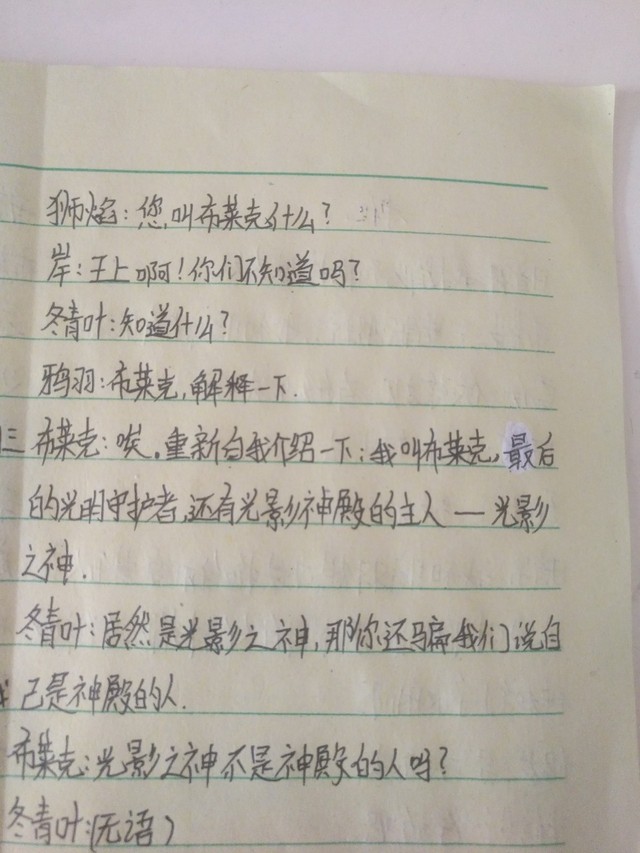 狮焰：您叫布莱克什么？
岸：王上啊！你们不知道吗？
冬青叶：知道什么？
鸦羽：布莱克，解释一下．
三 布莱克：唉。重新自我介绍一下；我叫布莱克，最后
的光明守护者，还有光影神殿的主人 — 光影
之神．
冬青叶：居然是光影之神，那你还骗我们说自
己是神殿的人．
布莱克：光影之神不是神殿的人吗？
冬青叶：（无语）